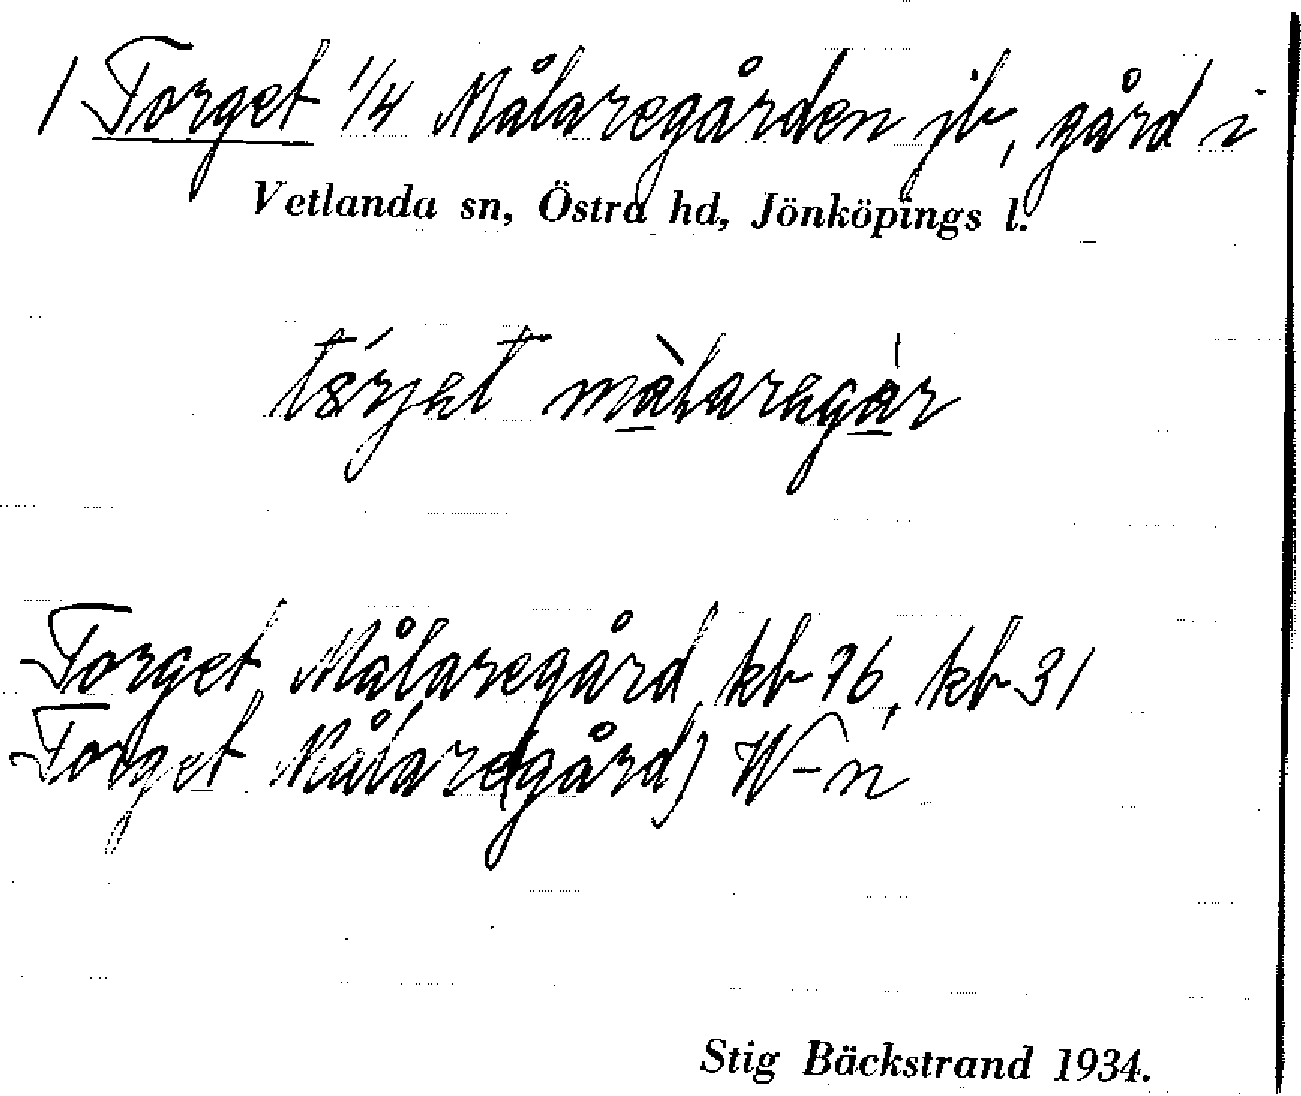 1 Torget 1/4 Målaregården jb, gård i
Vetlanda sn, Östra hd, Jönköpings l.
målaregår
Torget Målaregård kb 76, kb 31
Torget Målare(gård) W-n
Stig Bäckstrand 1934.